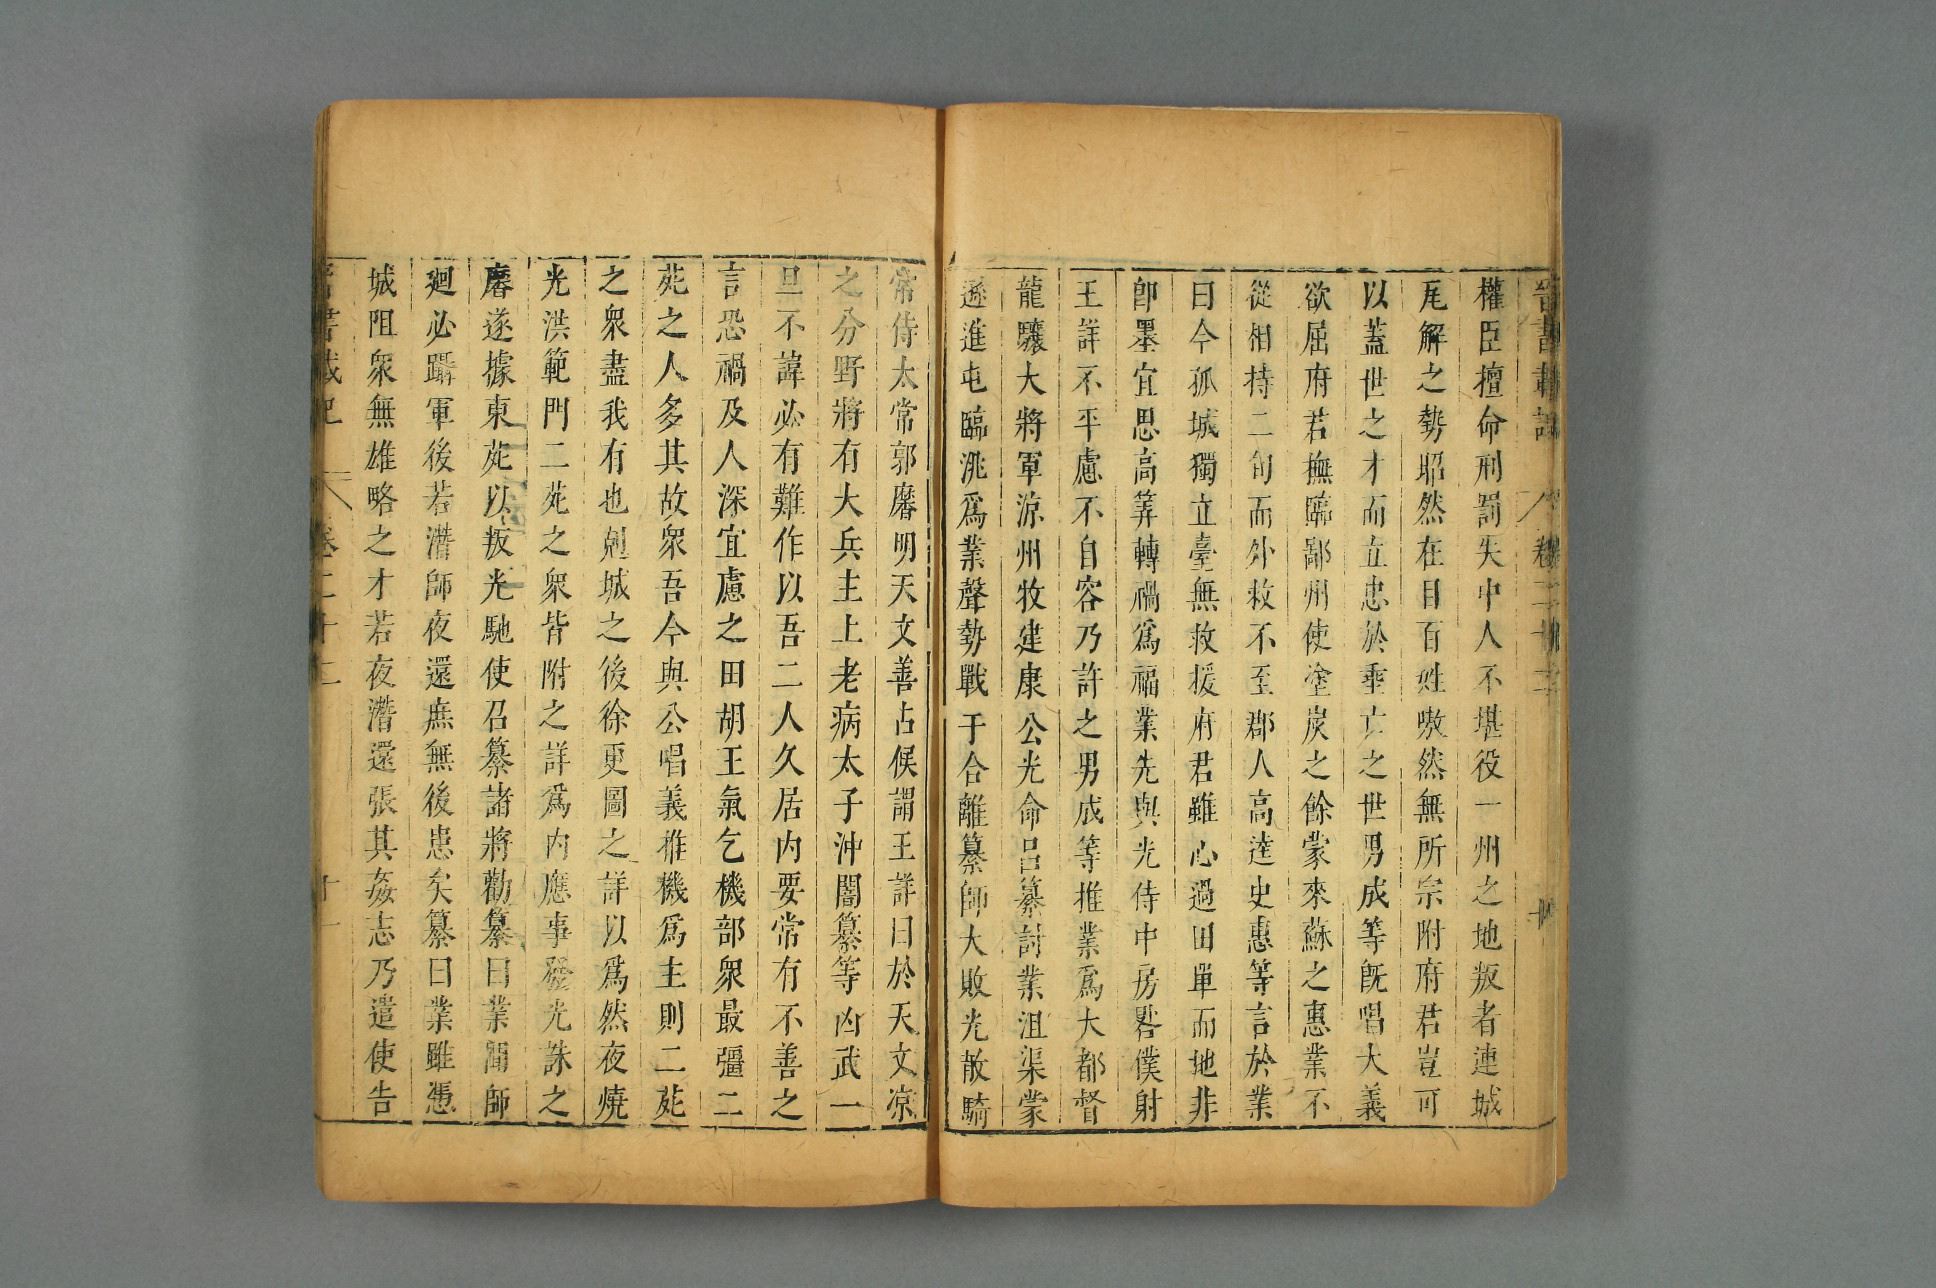 權臣擅命刑罰失中人不堪役一州之地叛者連城
瓦解之勢昭然在目百姓嗷然無所宗附府君豈可
以蓋世之才而立忠於垂亡之世男成等既唱大義
欲屈府君撫臨鄙州使塗炭之餘蒙來蘇之惠業不
從相持二旬而外救不至郡人高逵史惠等言於業
曰今孤城獨立臺無救援府君雖心過田單而地非
卽墨宜思高筭轉禍爲福業先與光侍中房晷僕射
王詳不平慮不自容乃許之男成等推業爲大都督
龍驤大將軍涼州牧建康公光命呂纂討業沮渠蒙
遜進屯臨洮爲業聲勢戰于合離纂師大敗光散騎
常侍太常郭黁明天文善占候謂王詳曰於天文凉
之分野將有大兵主上老病太子沖闇纂等凶武一
旦不諱必有難作以吾二人久居内要常有不善之
言恐禍及人深宜慮之田胡王氣乞機部衆最彊二
苑之人多其故衆吾今與公唱義推機爲主則二苑
之衆盡我有也剋城之後徐更圖之詳以爲然夜燒
光洪範門二苑之衆皆附之詳爲内應事發光誅之
黁遂據東苑以叛光馳使召纂諸將勸纂曰業聞師
廻必躡軍後若濳師夜還庶無後患矣纂曰業雖憑
城阻衆無雄略之才若夜濳還張其姦志乃遣使告
晉書載記 卷二十二 十一